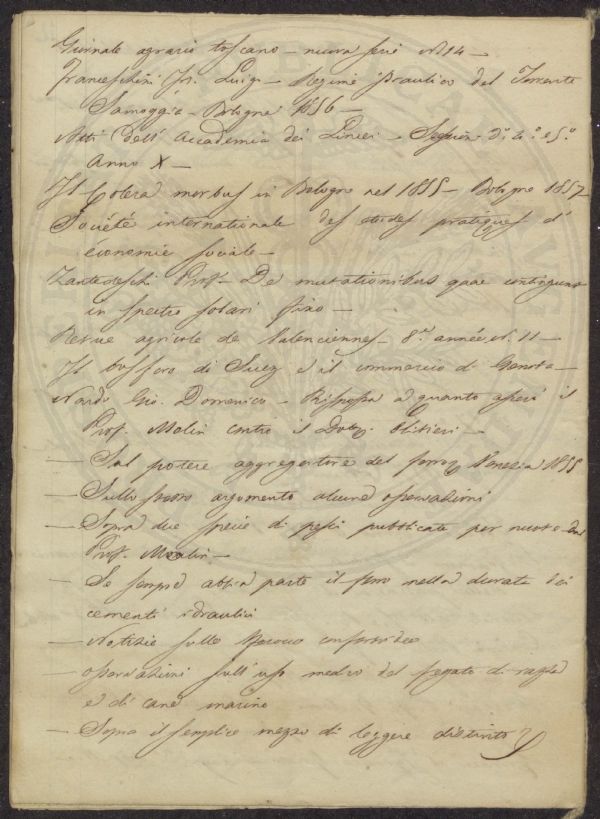 Giornale agrario toscano – nuova serie N. 14 –
Franceschini Luigi – Regime idraulico del Torrente
Samoggia – Bologna 1856 –
Atti dell' Accademia dei Lincei – 4.° e 5.°
Anno X –
Il Colera morbus in Bologna nel 1855 – Bologna 1857
Société internationale des études pratiques d'
économie sociale –
Zantedeschi Prof. – De mutationibus quae contingunt
in spectro solari fixo –
Revue agricole de Valenciennes – 8.me année N. 11 –
Il bosforo di Suez e il commercio di Genova –
Nardo Gio. Domenico – Risposta a quanto il
Prof. Molin contro il Dott.
– Sul potere aggregatore del ferro Venezia 1855
– Sullo stesso argomento alcune osservazioni
– Sopra due specie di pesci pubblicate per nuove dal
Prof. Molin –
– Se sempre abbia parte il ferro nella durata dei
cementi idraulici
– Notizie sullo
– osservazioni sull' uso medico del fegato di razza
e di cane marino
– Sopra il semplice mezzo di leggere distinto